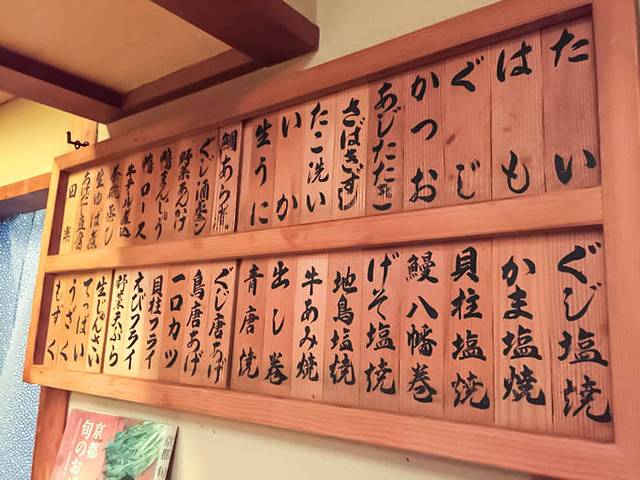 たい
はも
ぐじ
かつお
あじたたき
さばきずし
たこ洗い
いか
生うに
鯛あら煮
ぐじ酒蒸し
野菜あんかけ
鴨まんじゅう
鴨ロース
牛すじ煮込
茶碗蒸し
生ゆば煮
田楽
ぐじ塩焼
かま塩焼
貝柱塩焼
鰻八幡巻
げそ塩焼
地鳥塩焼
牛あみ焼
出し巻
青唐焼
ぐじ唐あげ
鳥唐あげ
一口カツ
貝柱フライ
えびフライ
野菜天ぷら
生じゅんさい
てっぱい
うざく
もずく
京都
旬のお
京都 旬